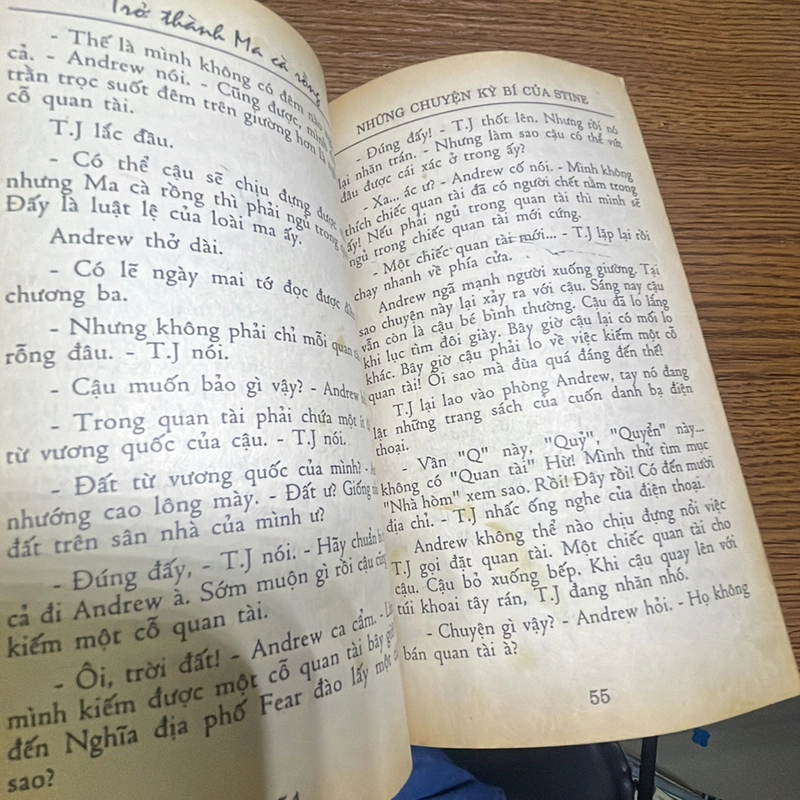 Trở thành Ma cà rồng
- Thế là mình không có đêm nào
cả. - Andrew nói. - Cũng được, mình
trằn trọc suốt đêm trên giường hơn là
cỗ quan tài.
T.J lắc đầu.
- Có thể cậu sẽ chịu đựng được
nhưng Ma cà rồng thì phải ngủ trong
Đấy là luật lệ của loài ma ấy.
Andrew thở dài.
- Có lẽ ngày mai tớ đọc được
chương ba.
- Nhưng không phải chỉ mỗi quan
rỗng đâu. - T.J nói.
- Cậu muốn bảo gì vậy? - Andrew
- Trong quan tài phải chứa một ít
từ vương quốc của cậu. - T.J nói.
- Đất từ vương quốc của mình? -
nhướng cao lông mày. - Đất ư? Giống
đất trên sân nhà của mình ư?
- Đúng đấy, - T.J nói. - Hãy chuẩn bị
cả đi Andrew à. Sớm muộn gì rồi cậu cũng
kiếm một cỗ quan tài.
- Ôi, trời đất! - Andrew ca cẩm. -
mình kiếm được một cỗ quan tài bây giờ
đến Nghĩa địa phố Fear đào lấy một
sao?
54
NHỮNG CHUYỆN KỲ BÍ CỦA STINE
- Đúng đấy! - T.J thốt lên. Nhưng rồi nó
lại nhăn trán. - Nhưng làm sao cậu có thể vứt
đâu được cái xác ở trong ấy?
- Xa... ác ư? - Andrew cố nói. - Mình không
thích chiếc quan tài đã có người chết nằm trong
ấy! Nếu phải ngủ trong quan tài thì mình sẽ
ngủ trong chiếc quan tài mới cứng.
- Một chiếc quan tài mới... - T.J lặp lại rồi
chạy nhanh về phía cửa.
Andrew ngã mạnh người xuống giường. Tại
sao chuyện này lại xảy ra với cậu. Sáng nay cậu
vẫn còn là cậu bé bình thường. Cậu đã lo lắng
khi lục tìm đôi giày. Bây giờ cậu lại có mối lo
khác. Bây giờ cậu phải lo về việc kiếm một cỗ
quan tài! Ôi sao mà đùa quá đáng đến thế!
T.J lại lao vào phòng Andrew, tay nó đang
lật những trang sách của cuốn danh bạ điện
thoại.
- Vần "Q" này, "Quỷ", "Quyển" này...
không có "Quan tài" Hừ! Mình thử tìm mục
"Nhà hòm" xem sao. Rồi! Đây rồi! Có đến mười
địa chỉ. - T.J nhấc ống nghe của điện thoại.
Andrew không thể nào chịu đựng nổi việc
T.J gọi đặt quan tài. Một chiếc quan tài cho
cậu. Cậu bỏ xuống bếp. Khi cậu quay lên với
túi khoai tây rán, T.J đang nhăn nhó.
- Chuyện gì vậy? - Andrew hỏi. - Họ không
bán quan tài à?
55